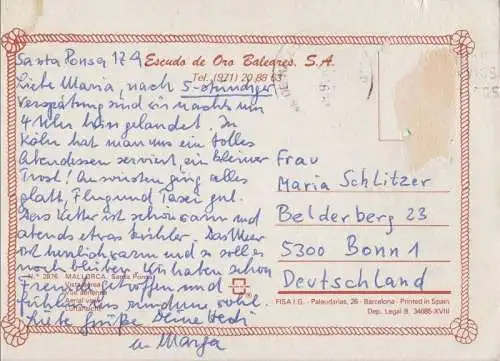 Santa Ponsa 17.9
Escudo de Oro Baleares, S.A.
Tel. (971) 20 88 63
Liebe Maria, nach 5-stündiger
Verspätung sind wir nachts um
4 Uhr hier gelandet. In
Köln hat man uns ein tolles
Abendessen serviert, ein kleiner
Trost! Ansonsten ging alles
glatt, Flug und Taxi gut.
Das Wetter ist schön warm und
abends etwas kühler. Das Meer
ist herrlich warm und so soll es
noch bleiben. Wir haben schon
Freunde getroffen und
fühlen uns rundum wohl.
Liebe Grüße Deine
u. Marga
N.° 2876 MALLORCA. Santa Ponsa
Vista aérea
Vue aérienne
Aerial view
Luftansicht
Frau
Maria Schlitzer
Belderberg 23
5300 Bonn 1
Deutschland
FISA I.G. - Palaudarias, 26 - Barcelona - Printed in Spain
Dep. Legal B. 34085-XVIII